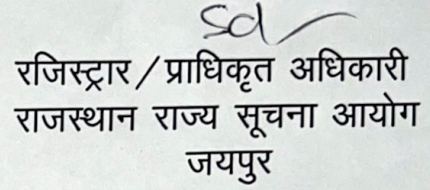 Sd
रजिस्ट्रार / प्राधिकृत अधिकारी
राजस्थान राज्य सूचना आयोग
जयपुर